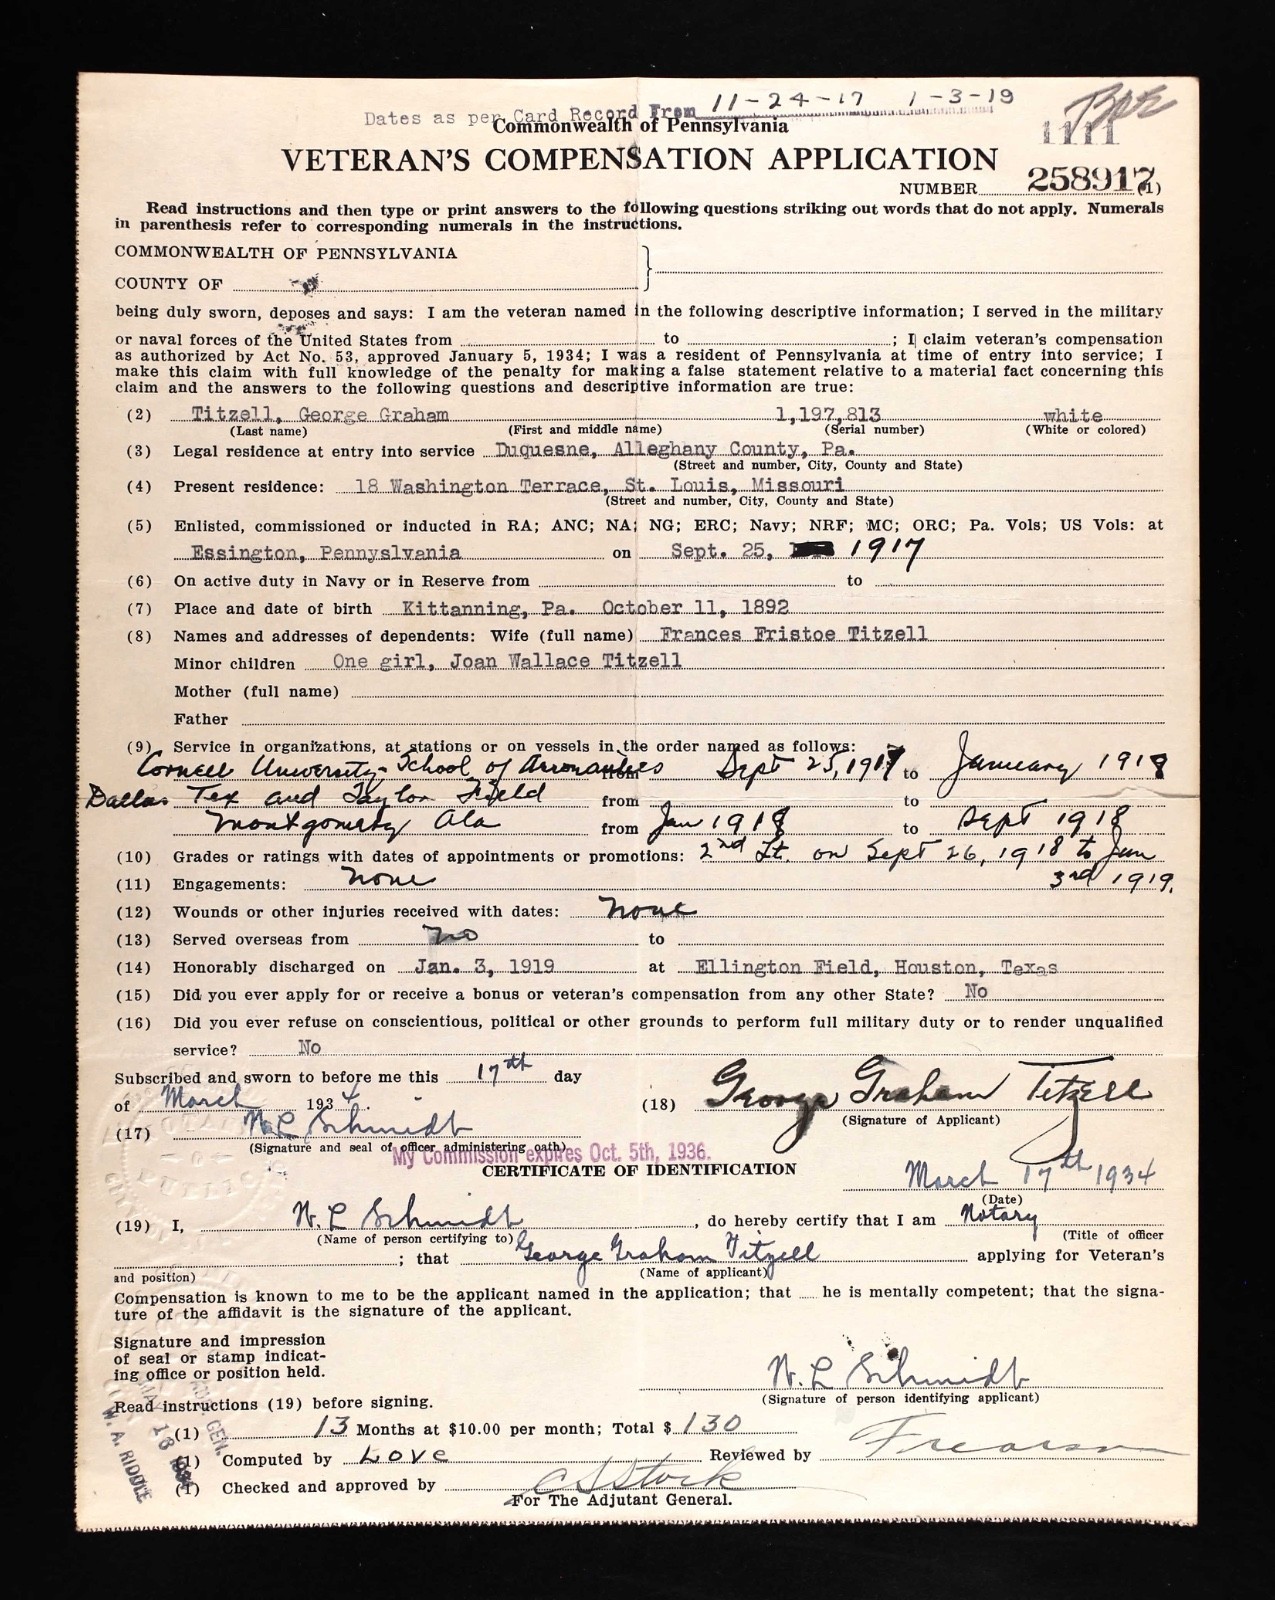 Dates as per Card Record From 11-24-17 1-3-19
1111
Commonwealth of Pennsylvania
VETERAN'S COMPENSATION APPLICATION
NUMBER 258917 (1)
Read instructions and then type or print answers to the following questions striking out words that do not apply. Numerals
in parenthesis refer to corresponding numerals in the instructions.
COMMONWEALTH OF PENNSYLVANIA
COUNTY OF
being duly sworn, deposes and says: I am the veteran named in the following descriptive information; I served in the military
or naval forces of the United States from to ; I claim veteran's compensation
as authorized by Act No. 53, approved January 5, 1934; I was a resident of Pennsylvania at time of entry into service; I
make this claim with full knowledge of the penalty for making a false statement relative to a material fact concerning this
claim and the answers to the following questions and descriptive information are true:
(2) Titzell, George Graham 1,197,813 white
(Last name) (First and middle name) (Serial number) (White or colored)
(3) Legal residence at entry into service Duquesne, Alleghany County, Pa.
(Street and number, City, County and State)
(4) Present residence: 18 Washington Terrace, St. Louis, Missouri
(Street and number, City, County and State)
(5) Enlisted, commissioned or inducted in RA; ANC; NA; NG; ERC; Navy; NRF; MC; ORC; Pa. Vols; US Vols: at
Essington, Pennyslvania on Sept. 25, 1917
(6) On active duty in Navy or in Reserve from to
(7) Place and date of birth Kittanning, Pa. October 11, 1892
(8) Names and addresses of dependents: Wife (full name) Frances Fristoe Titzell
Minor children One girl, Joan Wallace Titzell
Mother (full name)
Father
(9) Service in organizations, at stations or on vessels in the order named as follows:
Cornell University - School of Aeronautics from Sept 25, 1917 to January 1918
Dallas Tex and Taylor Field from to
Montgomery Ala from Jan 1918 to Sept 1918
(10) Grades or ratings with dates of appointments or promotions: 2nd Lt. on Sept 26, 1918 to Jan
(11) Engagements: none 3rd 1919.
(12) Wounds or other injuries received with dates: none
(13) Served overseas from no to
(14) Honorably discharged on Jan. 3, 1919 at Ellington Field, Houston, Texas
(15) Did you ever apply for or receive a bonus or veteran's compensation from any other State? No
(16) Did you ever refuse on conscientious, political or other grounds to perform full military duty or to render unqualified
service? No
Subscribed and sworn to before me this 17th day
of March 1934.
(18) George Graham Titzell
(Signature of Applicant)
(17) W L Schmidt
(Signature and seal of officer administering oath)
My Commission expires Oct. 5th, 1936.
CERTIFICATE OF IDENTIFICATION
March 17th 1934
(Date)
(19) I, W. L Schmidt, do hereby certify that I am Notary
(Name of person certifying to) (Title of officer
; that George Graham Titzell applying for Veteran's
and position) (Name of applicant)
Compensation is known to me to be the applicant named in the application; that he is mentally competent; that the signa-
ture of the affidavit is the signature of the applicant.
Signature and impression
of seal or stamp indicat-
ing office or position held.
W. L Schmidt
(Signature of person identifying applicant)
Read instructions (19) before signing.
(1) 13 Months at $10.00 per month; Total $ 130
(1) Computed by Love Reviewed by
(1) Checked and approved by
For The Adjutant General.
W. A. RIDDLE